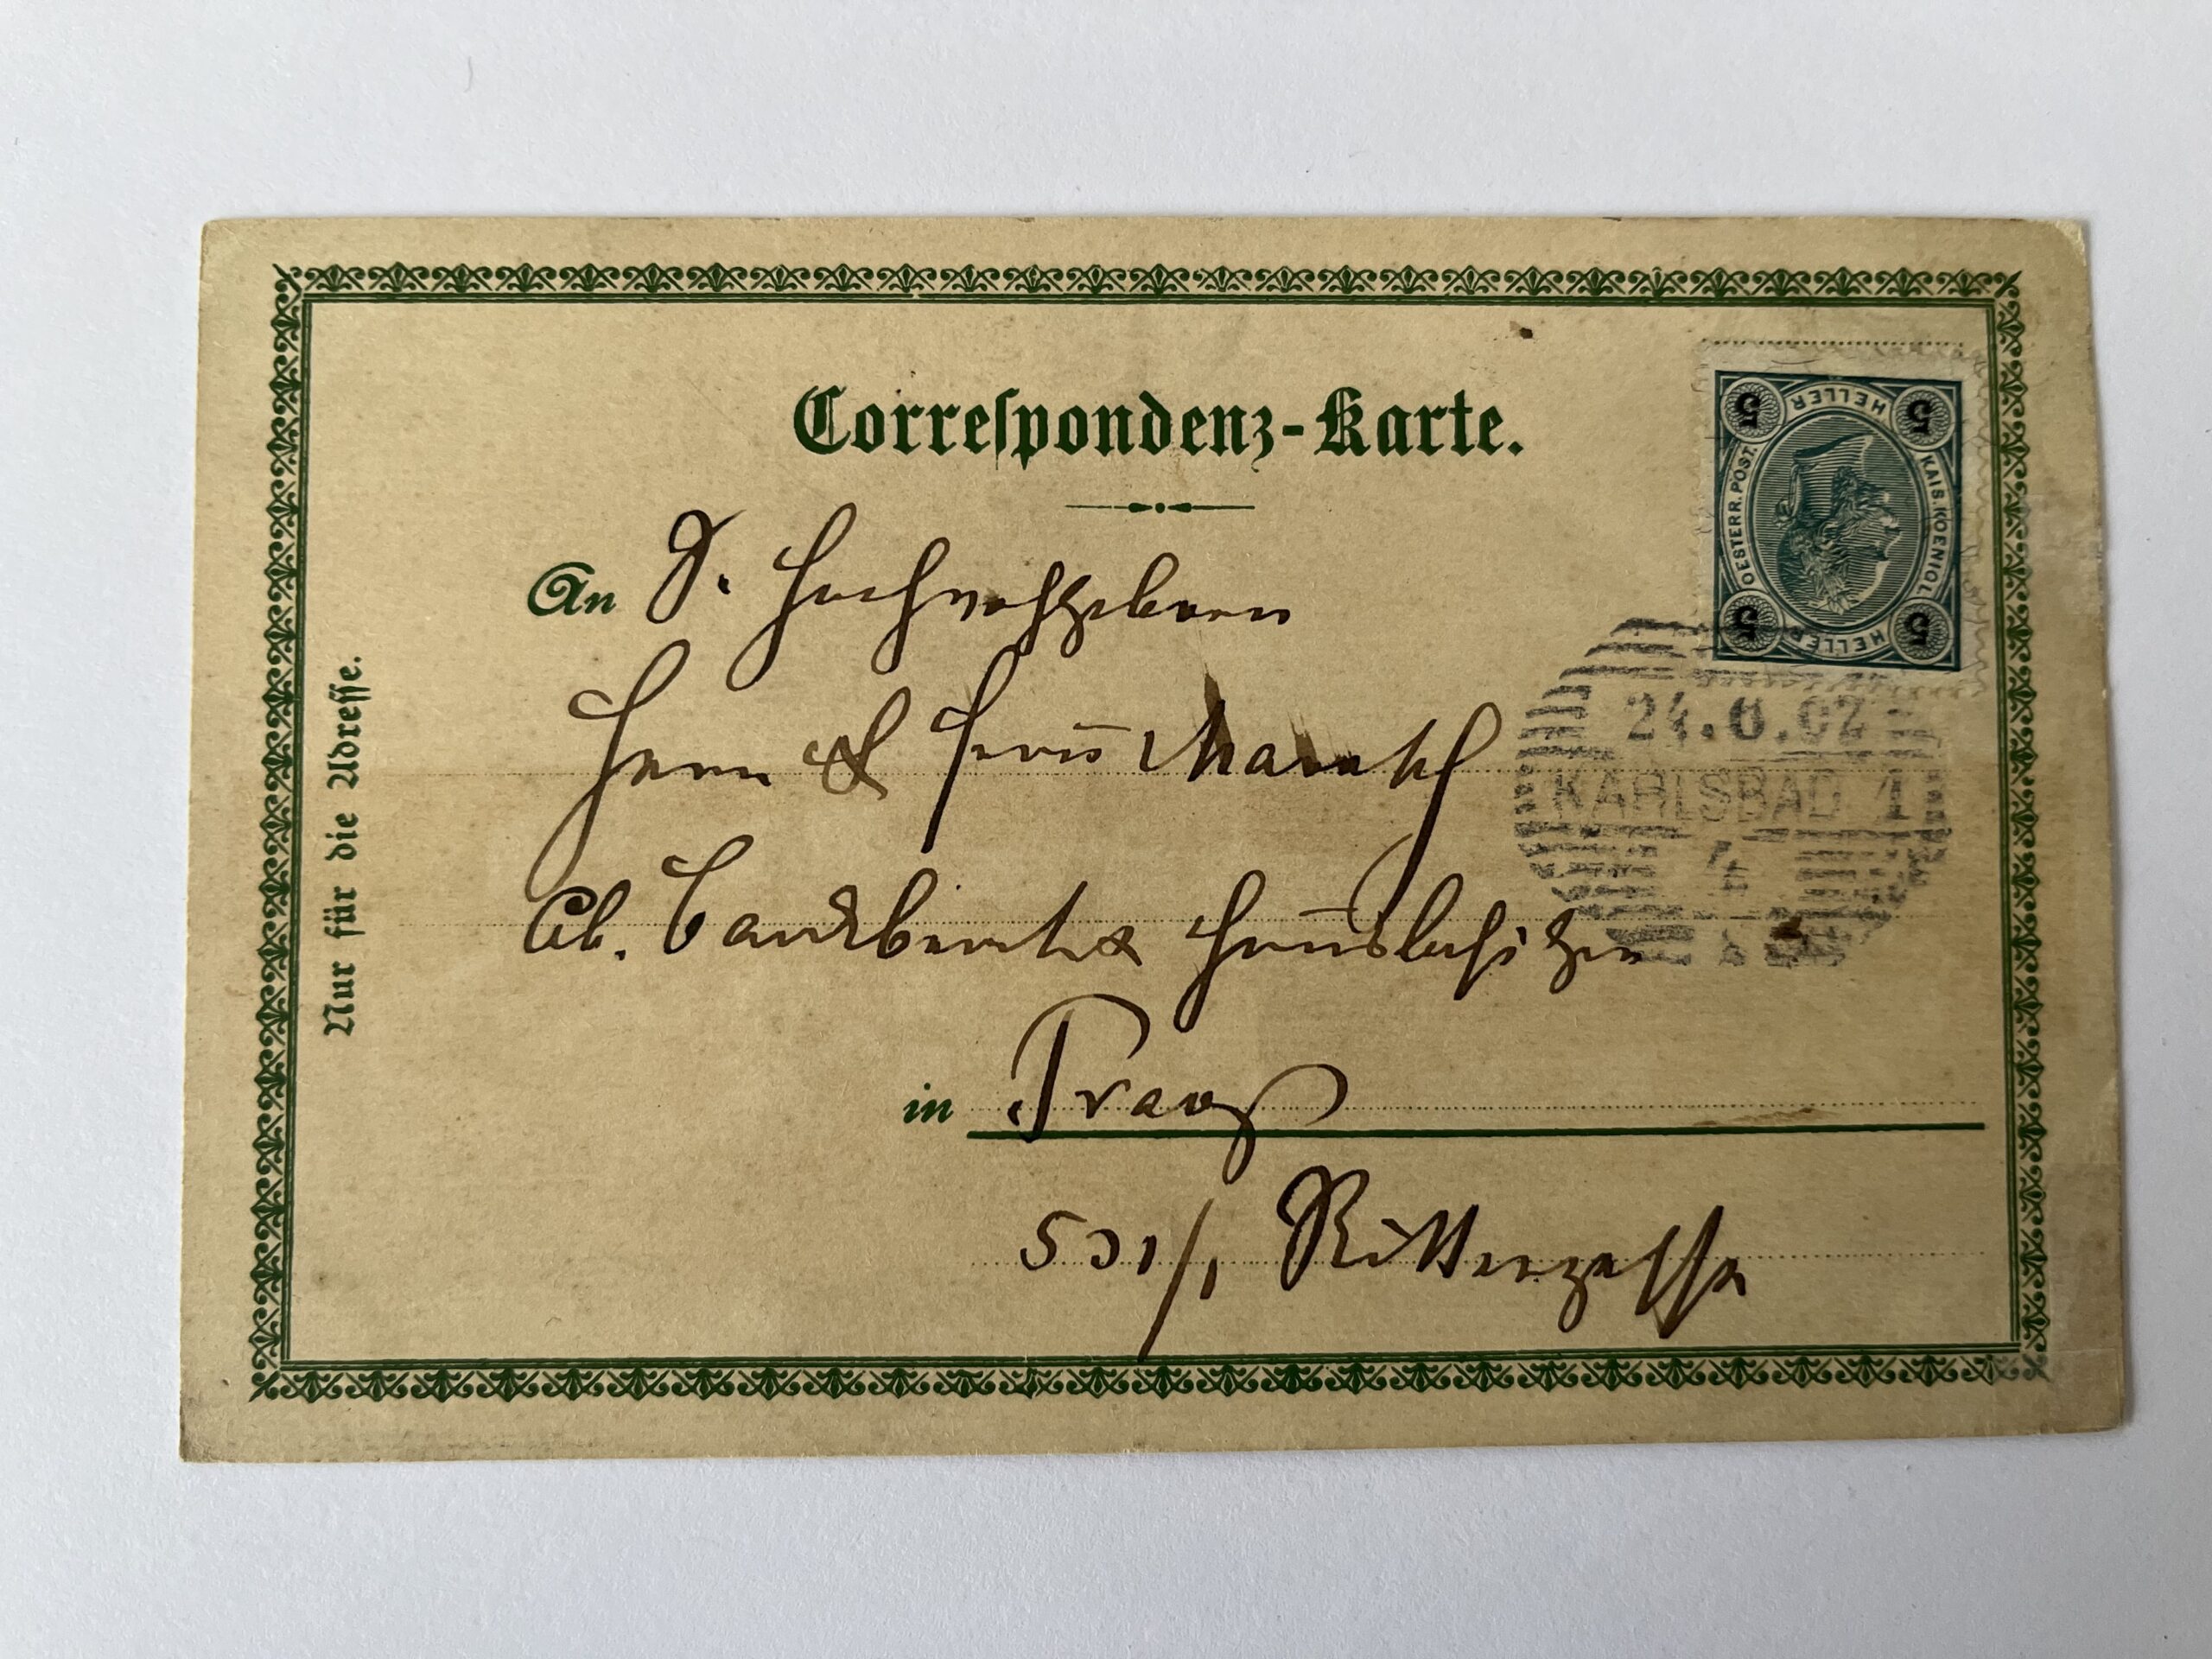 Correspondenz-Karte.
An S. Hochwohlgeboren
Herrn & Frau
Cb. Landbeamter & Hausbesitzer
in Prag
531/1 Rittergasse
Nur für die Adresse.
5 HELLER 5
OESTERR. POST. KAIS. KOENIGL.
5 HELLER 5
24.6.02
KARLSBAD 1
4